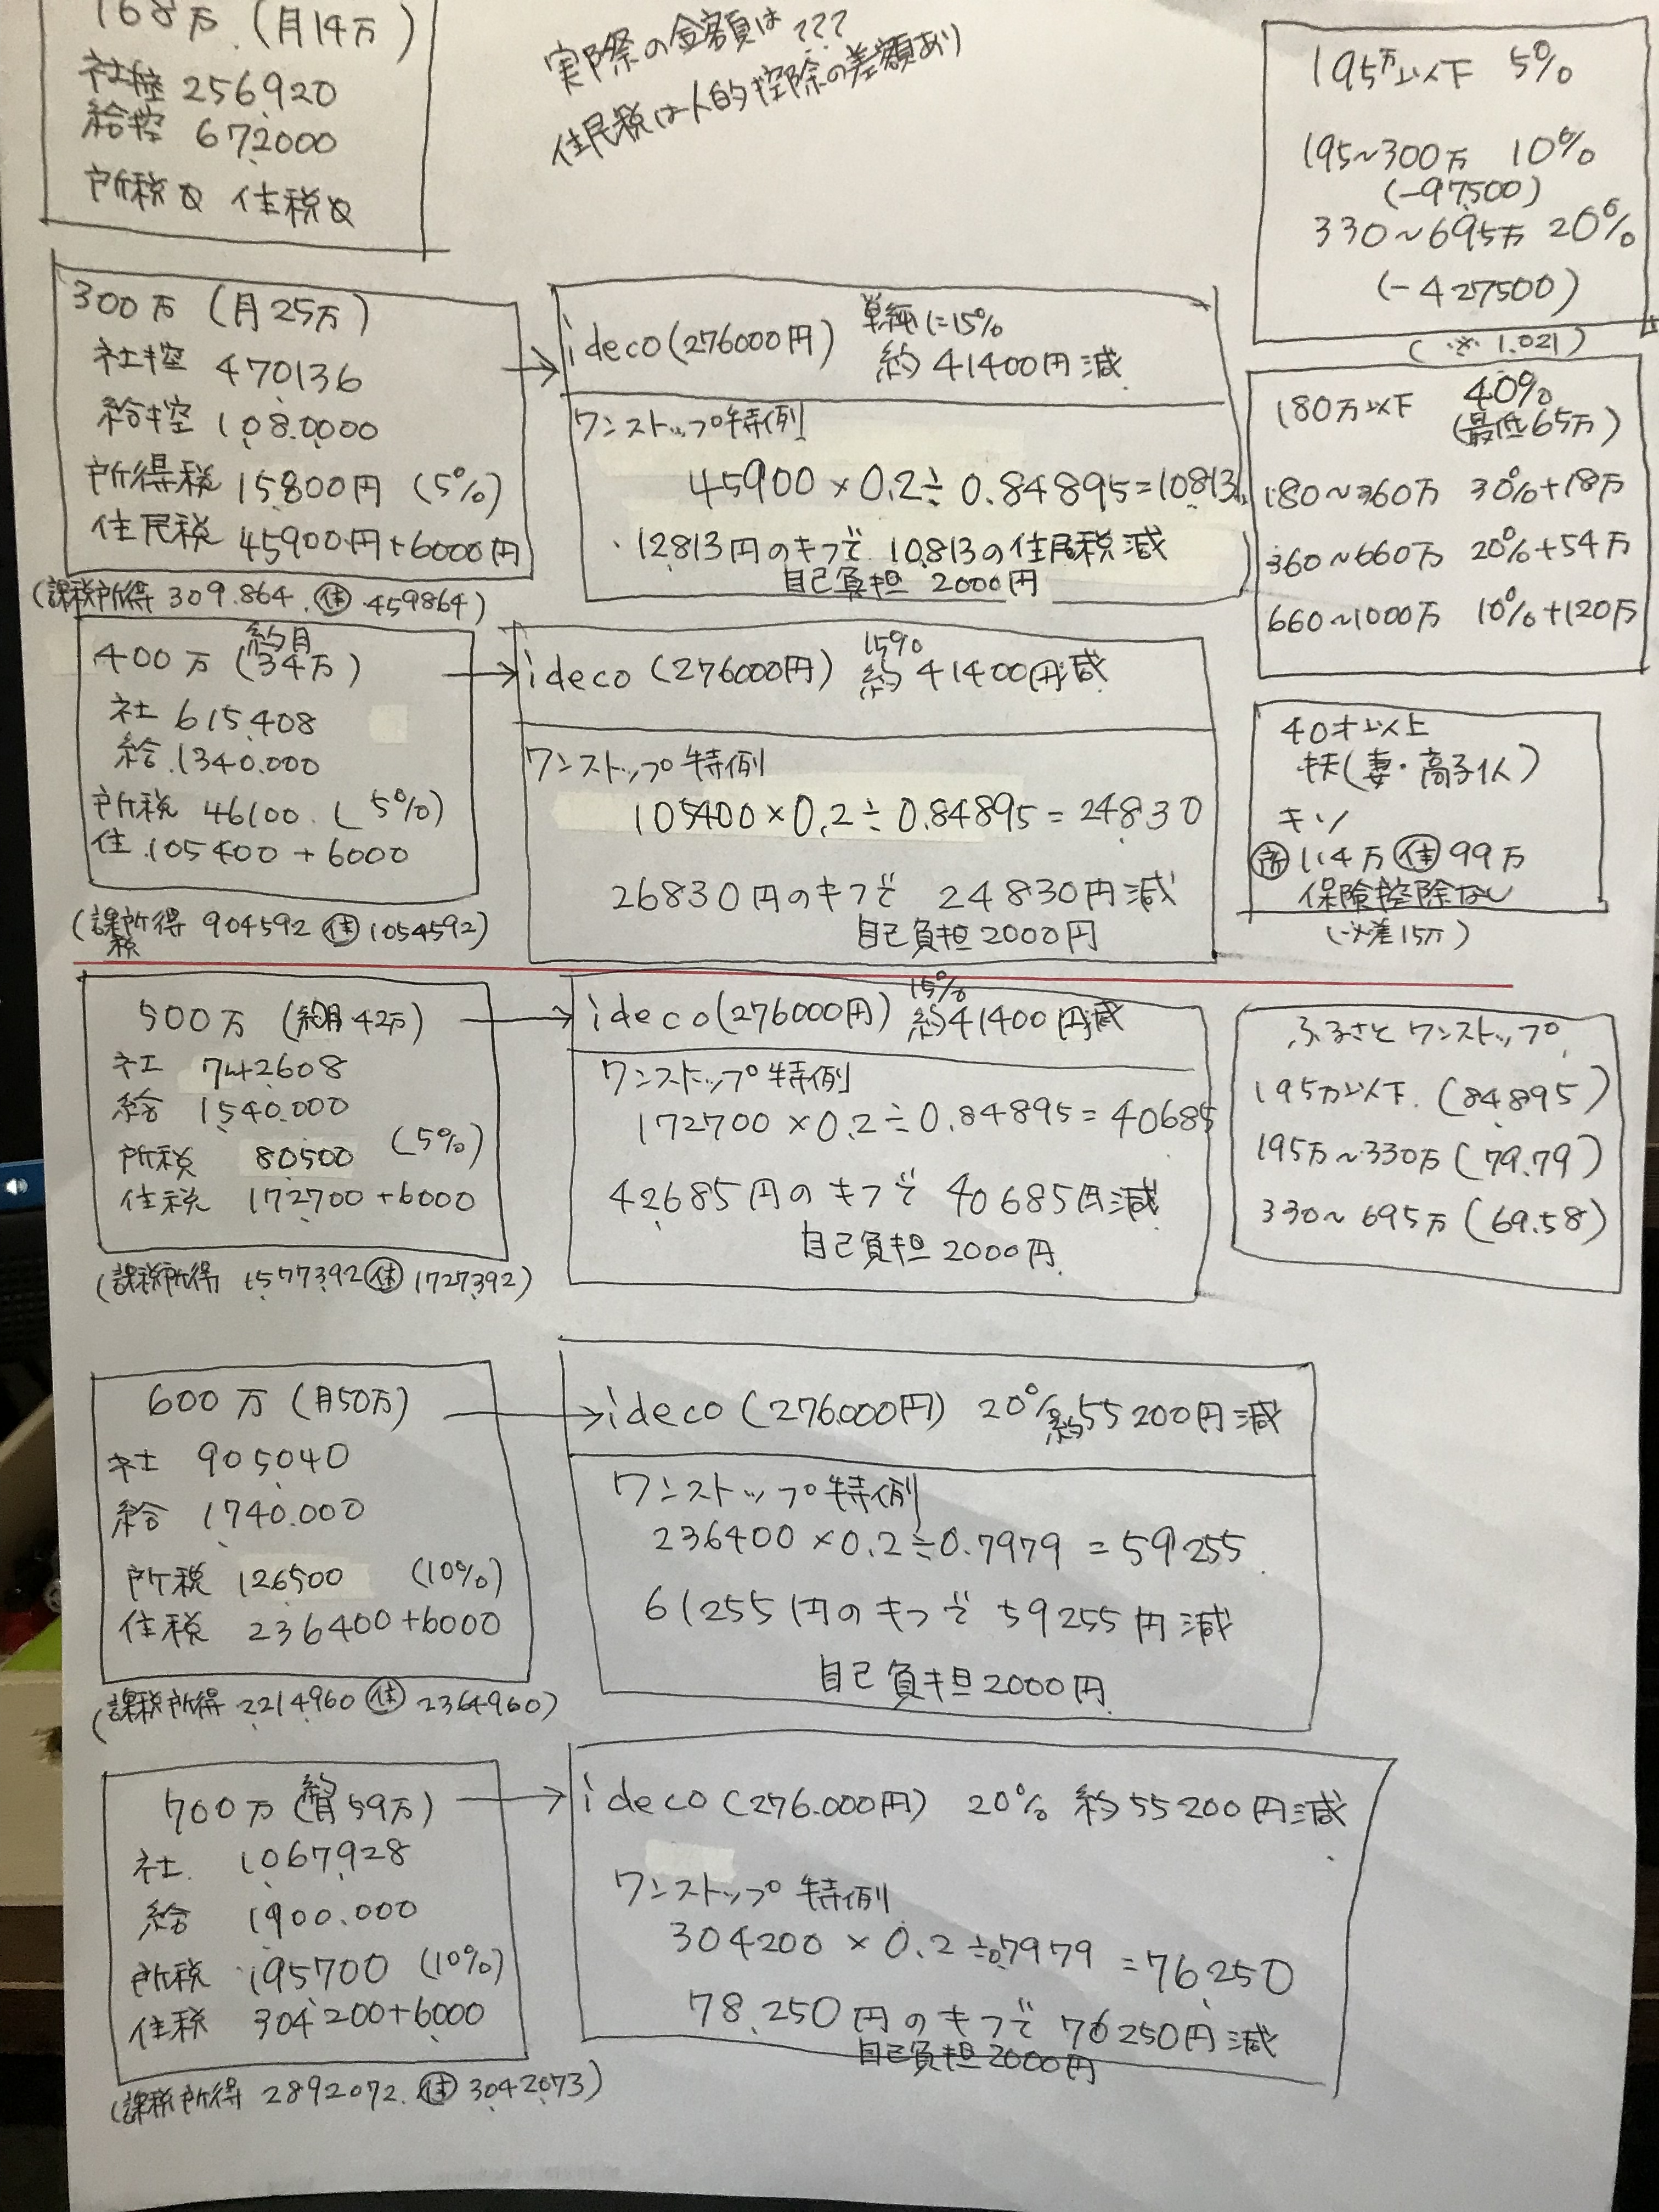 168万 (月14万)
社控 256920
給控 672000
所税0 住税0
実際の金額は???
住民税は人的控除の差額あり
195万以下 5%
195~300万 10%
(-97500)
330~695万 20%
(-427500)
(※ 1.021)
300万 (月25万)
社控 470136
給控 1,080,000
所得税 15800円 (5%)
住民税 45900円+6000円
(課税所得 309.864 住 459864)
ideco(276000円) 単純に15%
約41400円減
ワンストップ特例
45900×0.2÷0.84895=10813
12813円のキフで 10,813の住民税減
自己負担 2000円
180万以下 40%
(最低65万)
180~360万 30%+18万
360~660万 20%+54万
660~1000万 10%+120万
400万 (約月34万)
社 615,408
給 1340.000
所税 46100 (5%)
住 105400+6000
(課税所得 904592 住 1054592)
ideco (276000円) 15% 約41400円減
ワンストップ特例
105400×0.2÷0.84895=24830
26830円のキフで 24830円減
自己負担2000円
40才以上
扶(妻・高子1人)
キソ
所 114万 住 99万
保険控除なし
(※差15万)
500万 (約月42万)
社 742608
給 1540.000
所税 80500 (5%)
住税 172700+6000
(課税所得 1577392 住 1727392)
ideco(276000円) 15% 約41400円減
ワンストップ特例
172700×0.2÷0.84895=40685
42685円のキフで 40685円減
自己負担2000円
ふるさとワンストップ
195万以下 (84.895)
195万~330万 (79.79)
330~695万 (69.58)
600万 (月50万)
社 905040
給 1740.000
所税 126500 (10%)
住税 236400+6000
(課税所得 2214960 住 2364960)
ideco (276000円) 20% 約55200円減
ワンストップ特例
236400×0.2÷0.7979=59255
61255円のキフで 59255円減
自己負担2000円
700万 (約月59万)
社 1067928
給 1900.000
所税 195700 (10%)
住税 304200+6000
(課税所得 2892072 住 3042073)
ideco (276.000円) 20% 約55200円減
ワンストップ特例
304200×0.2÷0.7979=76250
78.250円のキフで 76250円減
自己負担2000円